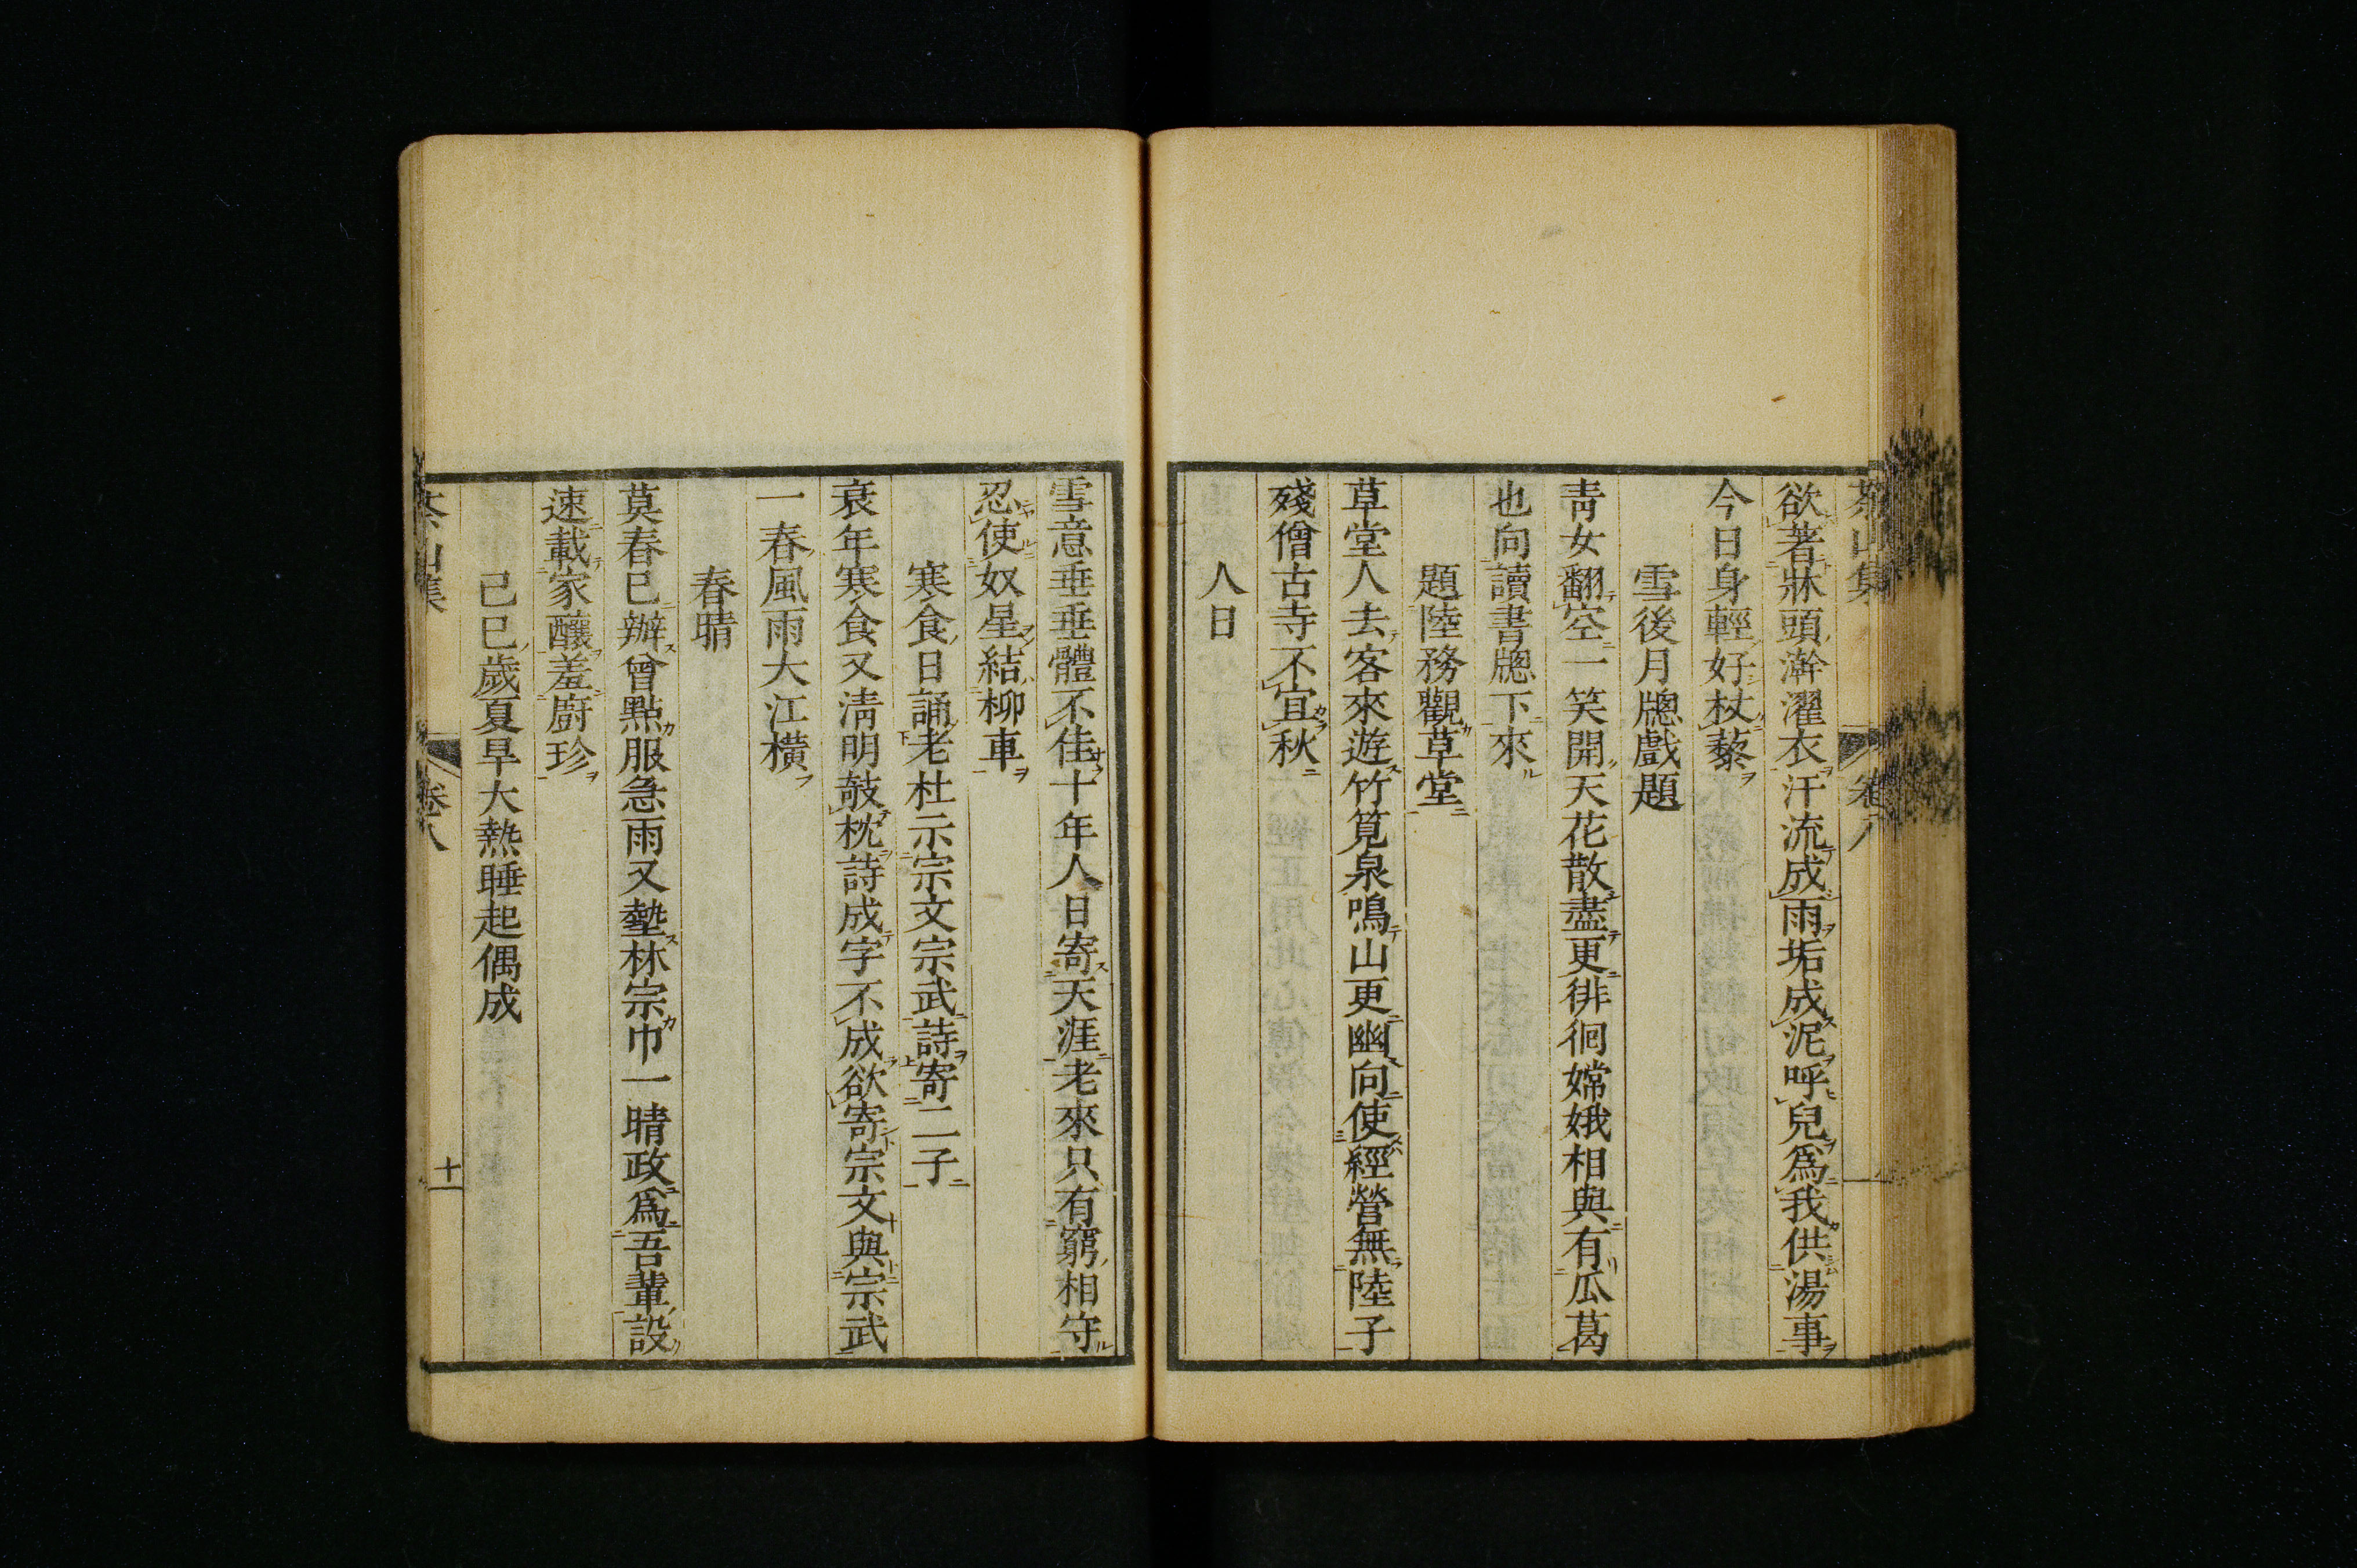 茶山集 卷八
欲著牀頭澣濯衣汗流成雨垢成泥呼兒爲我供湯事
今日身輕好杖藜
雪後月牕戲題
靑女翻空一笑開天花散盡更徘徊嫦娥相與有瓜葛
也向讀書牕下來
題陸務觀草堂
草堂人去客來遊竹筧泉鳴山更幽向使經營無陸子
殘僧古寺不宜秋
人日
雪意垂垂體不佳十年人日寄天涯老來只有窮相守
忍使奴星結柳車
寒食日誦老杜示宗文宗武詩寄二子
衰年寒食又淸明攲枕詩成字不成欲寄宗文與宗武
一春風雨大江橫
春晴
莫春已辦曾點服急雨又墊林宗巾一晴政爲吾輩設
速載家釀羞廚珍
己巳歲夏旱大熱睡起偶成
茶山集 卷八 十一